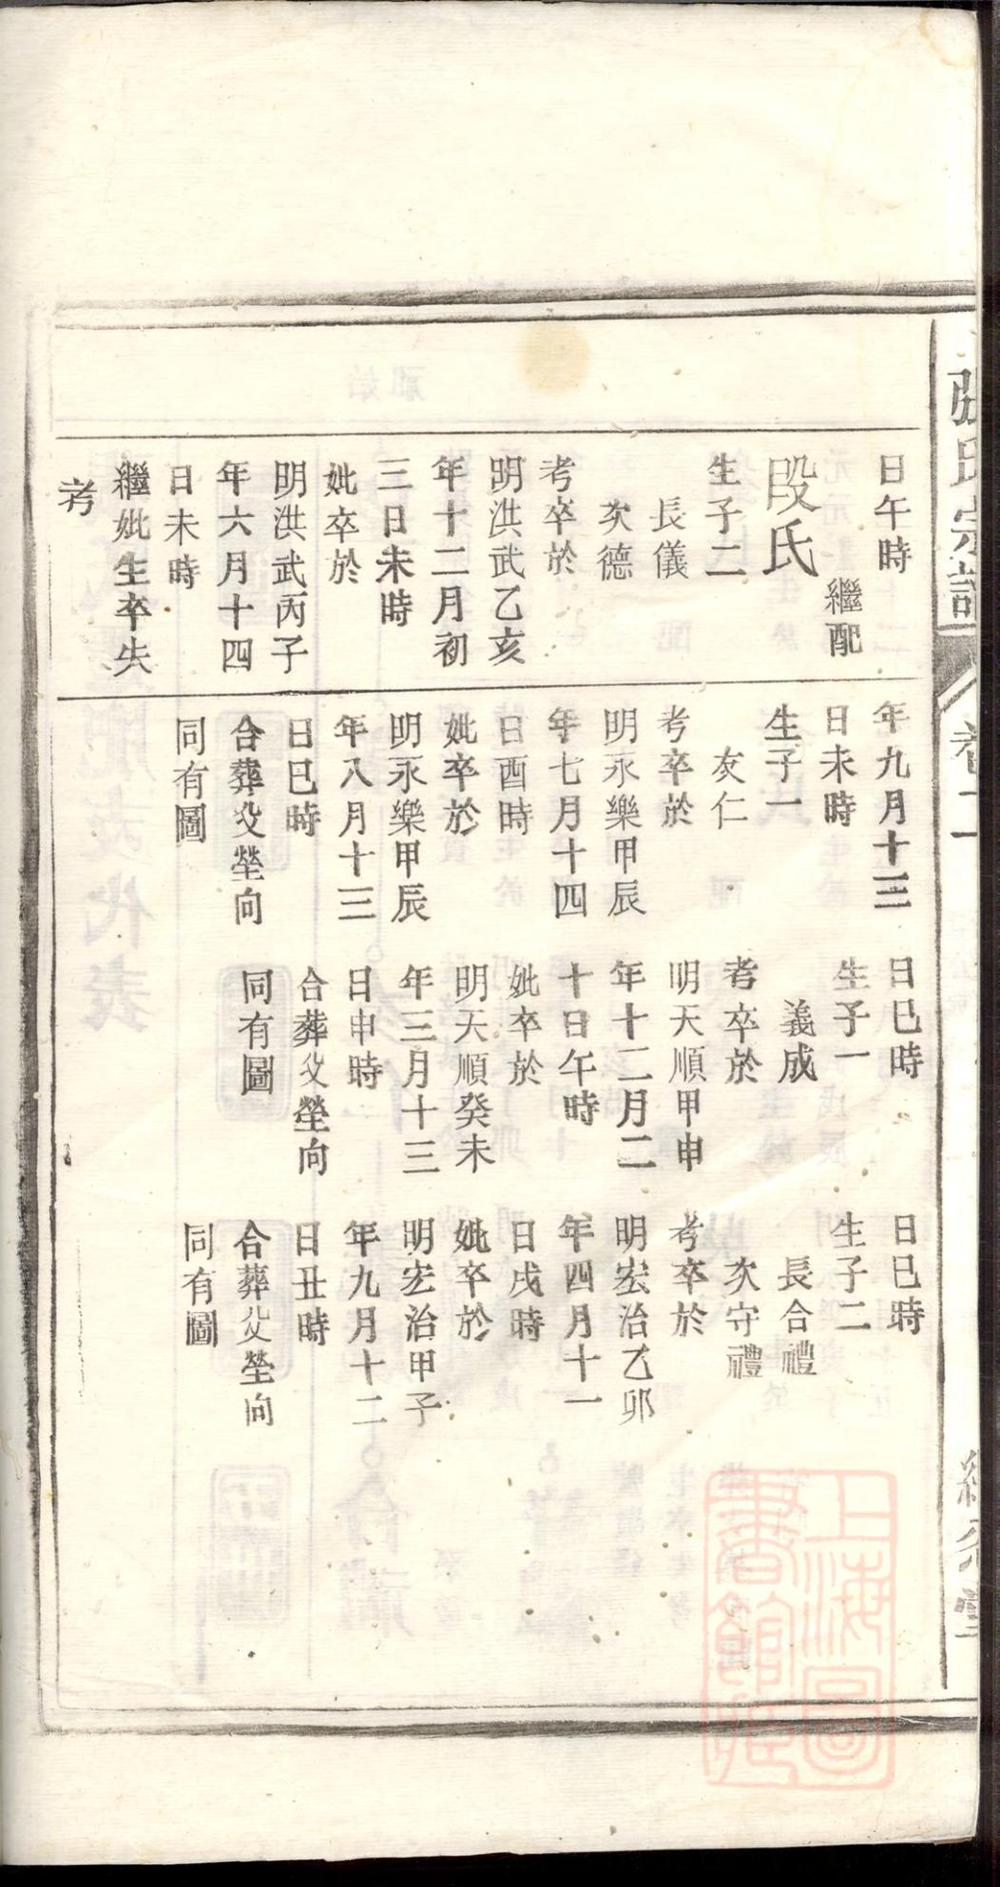 張氏宗譜
卷二
日午時
繼配
段氏
生子二
長儀
次德
考卒於
明洪武乙亥
年十二月初
三日未時
妣卒於
明洪武丙子
年六月十四
日未時
繼妣生卒失
考
年九月十三
日未時
生子一
友仁
考卒於
明永樂甲辰
年七月十四
日酉時
妣卒於
明永樂甲辰
年八月十三
日巳時
合葬父塋向
同有圖
日巳時
生子一
義成
考卒於
明天順甲申
年十二月二
十日午時
妣卒於
明天順癸未
年三月十三
日申時
合葬父塋向
同有圖
日巳時
生子二
長合禮
次守禮
考卒於
明宏治乙卯
年四月十一
日戌時
妣卒於
明宏治甲子
年九月十二
日丑時
合葬父塋向
同有圖
上海圖
書館藏